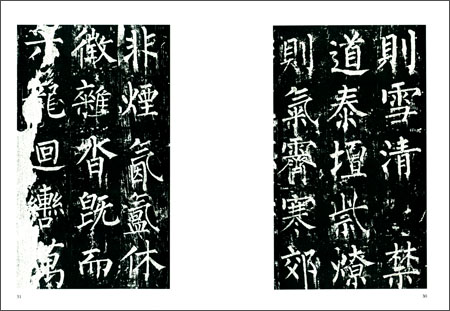 則雪清禁
道泰壇祡燎
則氣霽寒郊
50
非煙氤氳休
徵雜沓既而
六龍迴轡萬
51